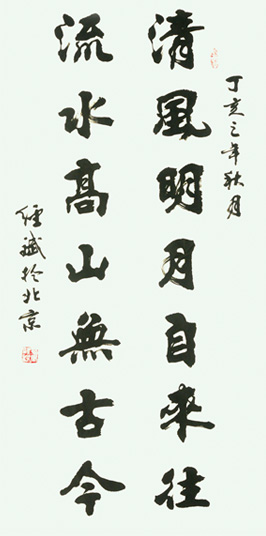 丁亥之年秋月
清風明月自來往
流水髙山無古今
經斌於北京